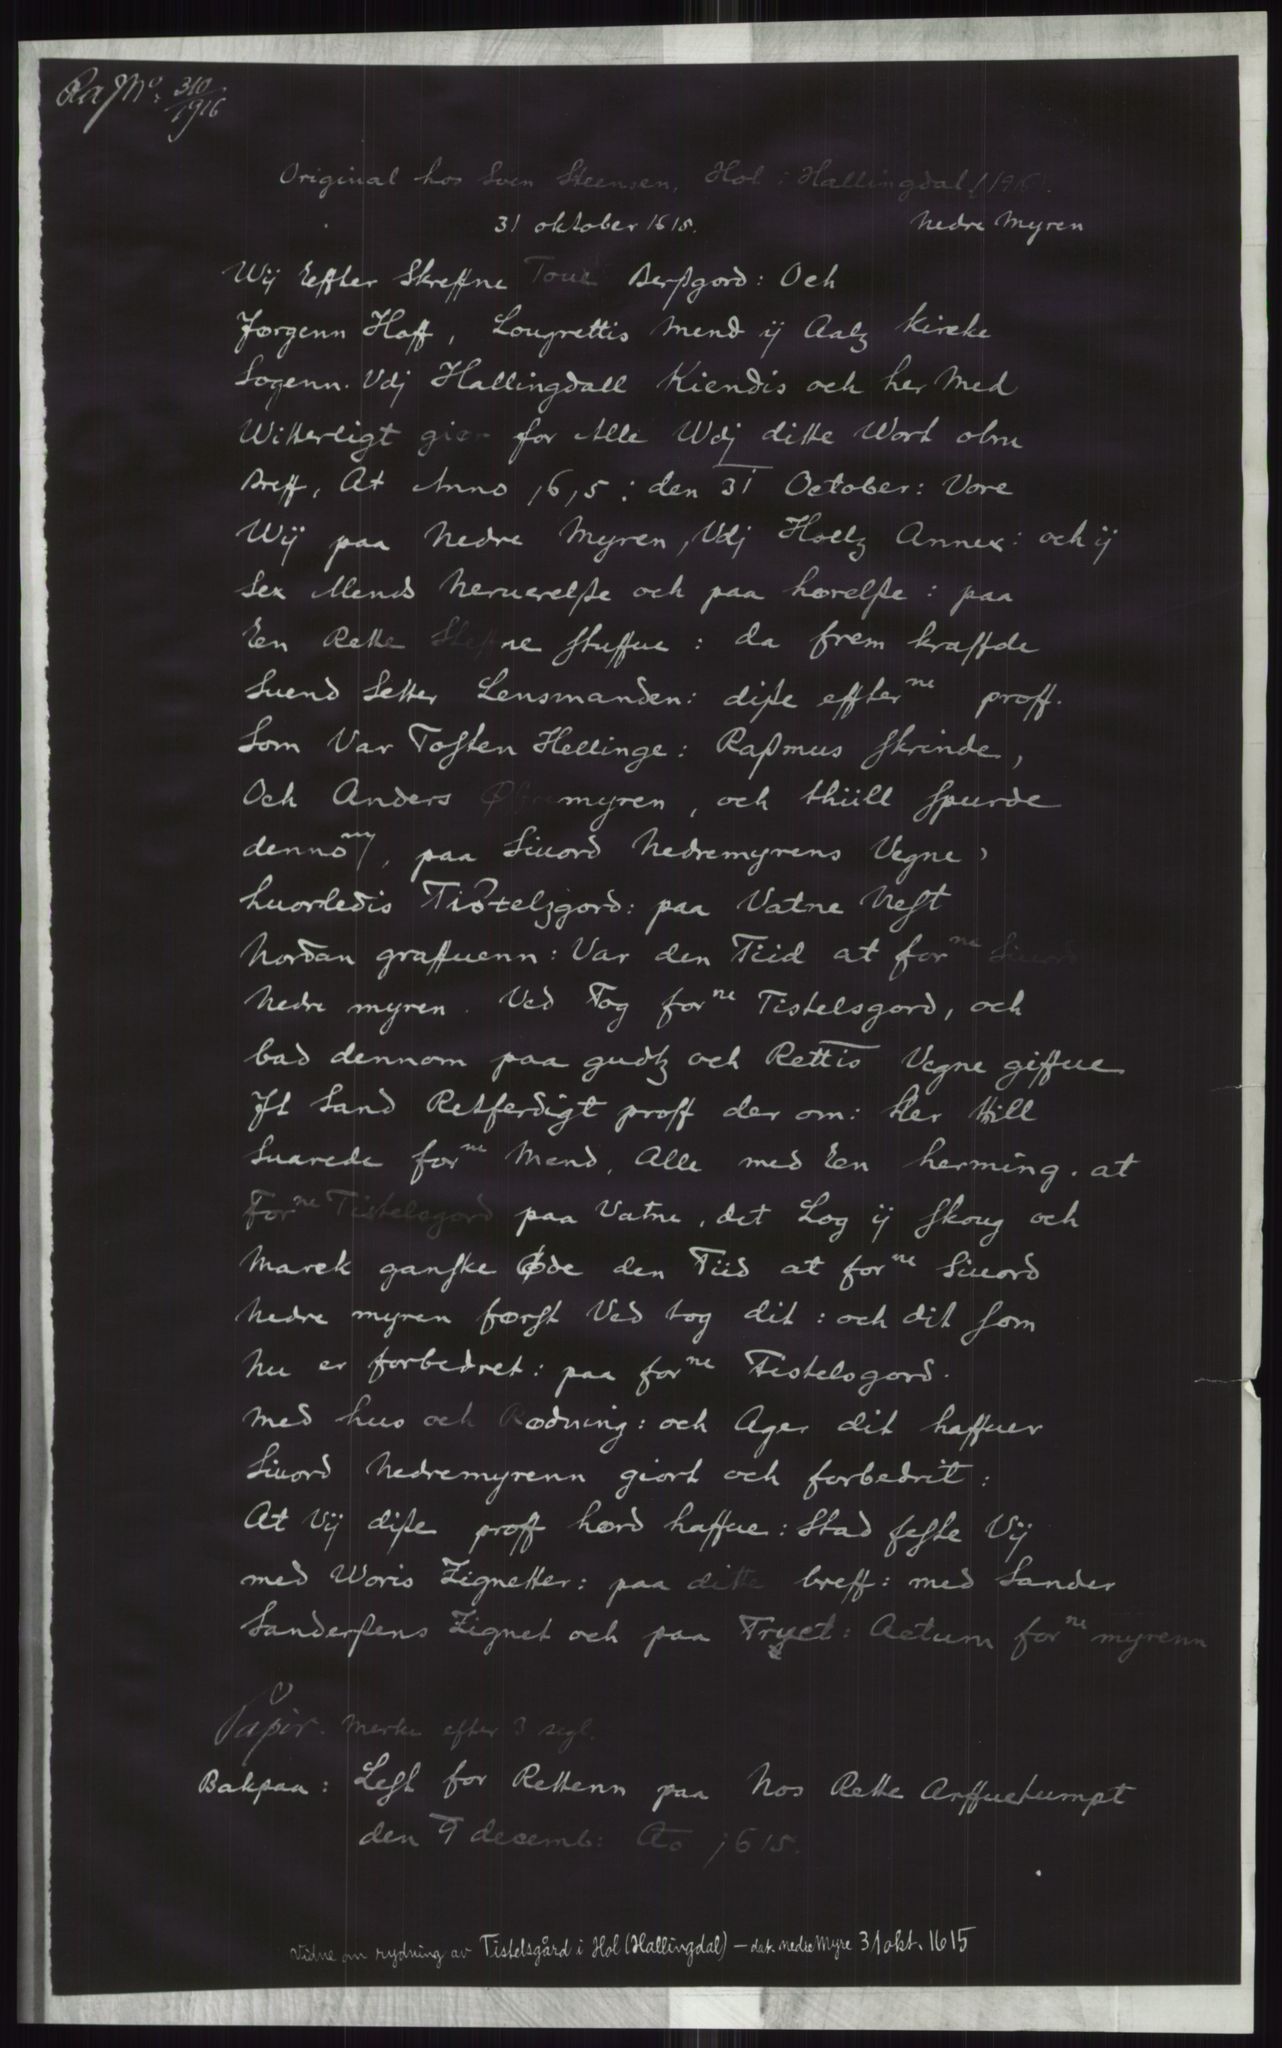 Ra Mo: 310/1916
Original hos Sven Steensen, Hol i Hallingdal (1916).
31 oktober 1615. Nedre Myren
Wij Effter Skreffne Toue Berßgord: Och
Jørgenn Hoff, Lougrettis Mend ij Aalz kircke
Sogenn. Vdj Hallingdall Kiendis och her Med
Witterligt giør for Alle Wdj ditte Wort obnn
Breff, At Anno ,6,5: den 31 October: Vore
Wij paa Nedre Myren, Vdj Hoelz Annex: och ij
Sex Mends Neruerelße och paa hørelße: paa
Een Rette Steffne stuffue: da frem kraffde
Suend Setter Lensmanden: diße effter ne proff.
Som Var Tosten Hellinge: Raßmus Skrinde,
Och Anders Øffremyren, och thiill spurde
dennom, paa Siuord Nedremyrens Vegne,
huorledis Tistelzgord: paa Vatne Nest
Nordan graffuenn: Var den Tiid at for ne Siuord
Nedre myren. Ved Tog for ne Tistelsgord, och
bad dennom paa gudtz och Rettis Vegne giffue
It Sand Retferdigt proff der om: her till
Suarede for ne Mend, Alle med Een herming. at
For ne Tistelsgord paa Vatne, det Log ij skoug och
Marck ganske Øde den Tiid at for ne Siuord
Nedre myren først Ved tog dit: och dit som
Nu er forbedret: paa for ne Tistelsgord.
med hus och Rødning: och Ager dit haffuer
Siuord Nedremyrenn giort och forbedrit:
At Vij diße proff hørd haffue: Stad feste Vij
med Woris Zignetter: paa ditte breff: med Sander
Sanderßens Zignet och paa Tryct: Actum for ne myrenn
Papir. Merke efter 3 segl.
Bakpaa: Lest for Rettenn paa Nos Rette Arffuetumpt
den 9 decemb: Ao 1615.
Vidne om rydning av Tistelsgård i Hol (Hallingdal) – dat. nedre Myre 31 okt. 1615